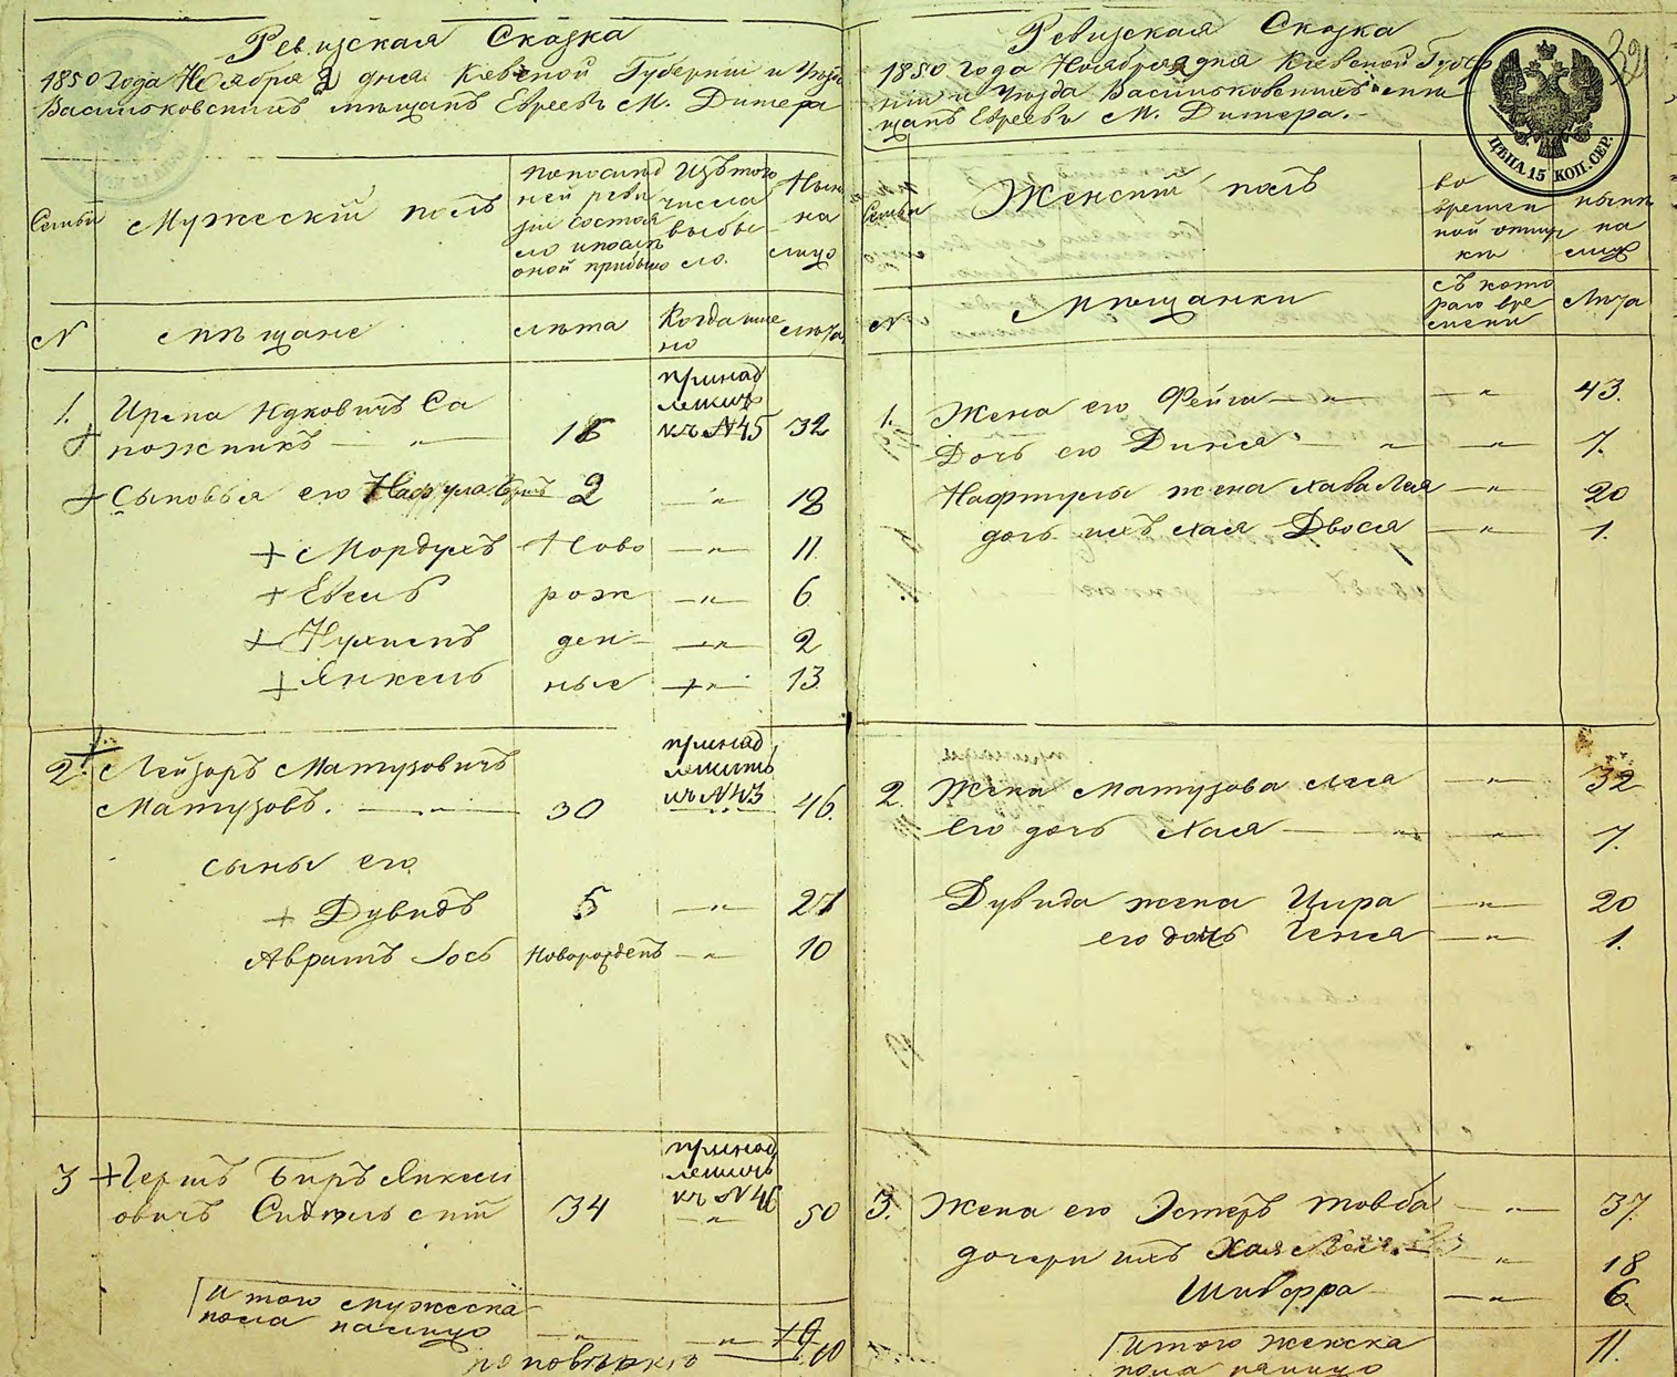 Ревизская Сказка
1850 Года Ноября 2 дня Кіевской Губерніи и Уезда
Васильковскихъ мещанъ Евреевъ М. Дитера
Семьи
Мужескій полъ
По последней ревизіи состояло и после оной прибыло
Изъ того числа выбыло
Ныне на лицо
№
мещане
лета
Когда именно
лета
1. Ирепа Ицковичъ Са
пожникъ — " — 16 принадлежитъ къ №45 32
Сыновья его Нафтула 2 — " — 18
Мордухъ Ново — " — 11.
Евель рож — " — 6
Нухимъ ден — " — 2
Янкель ные — " — 13
2. Лейзоръ Матузовичъ
Матузовъ. — " — 30 принадлежитъ къ №43 46.
сыны его
Дувидъ 5 — " — 21
Аврамъ Іось Новорожденъ — " — 10
3 Гершъ Беръ Янкели
овичъ 34 принадлежитъ къ №46 — " — 50
Итого мужеска
пола налицо — " — " — 10
по поверкъю
Ревизская Сказка
1850 года Ноября 2 дня Кіевской Губер
ніи и Уезда Васильковскихъ ме
щанъ Евреевъ М. Дитера. -
Семьи
Женскій полъ
во временной отлучке
ныне на лицо
№
мещанки
съ котораго времени
Лета
1. Жена его Фейга — " — " — 43.
Дочь его Динся — " — " — 7.
Нафтулы жена Хава Лея — " — 20
дочь ихъ Хая Двося — " — 1.
2. Жена Матузова Леа — " — 32
его дочь Хая — " — " — 7.
Дувида жена Цира — " — 20
его дочь Геня — " — 1.
3. Жена его Эстеръ Товба — " — 37.
дочери ихъ Хая — " — 18
Шиверра — " — 6.
Итого женска
пола налицо 11.
ЦѢНА 15 КОП. СЕР.